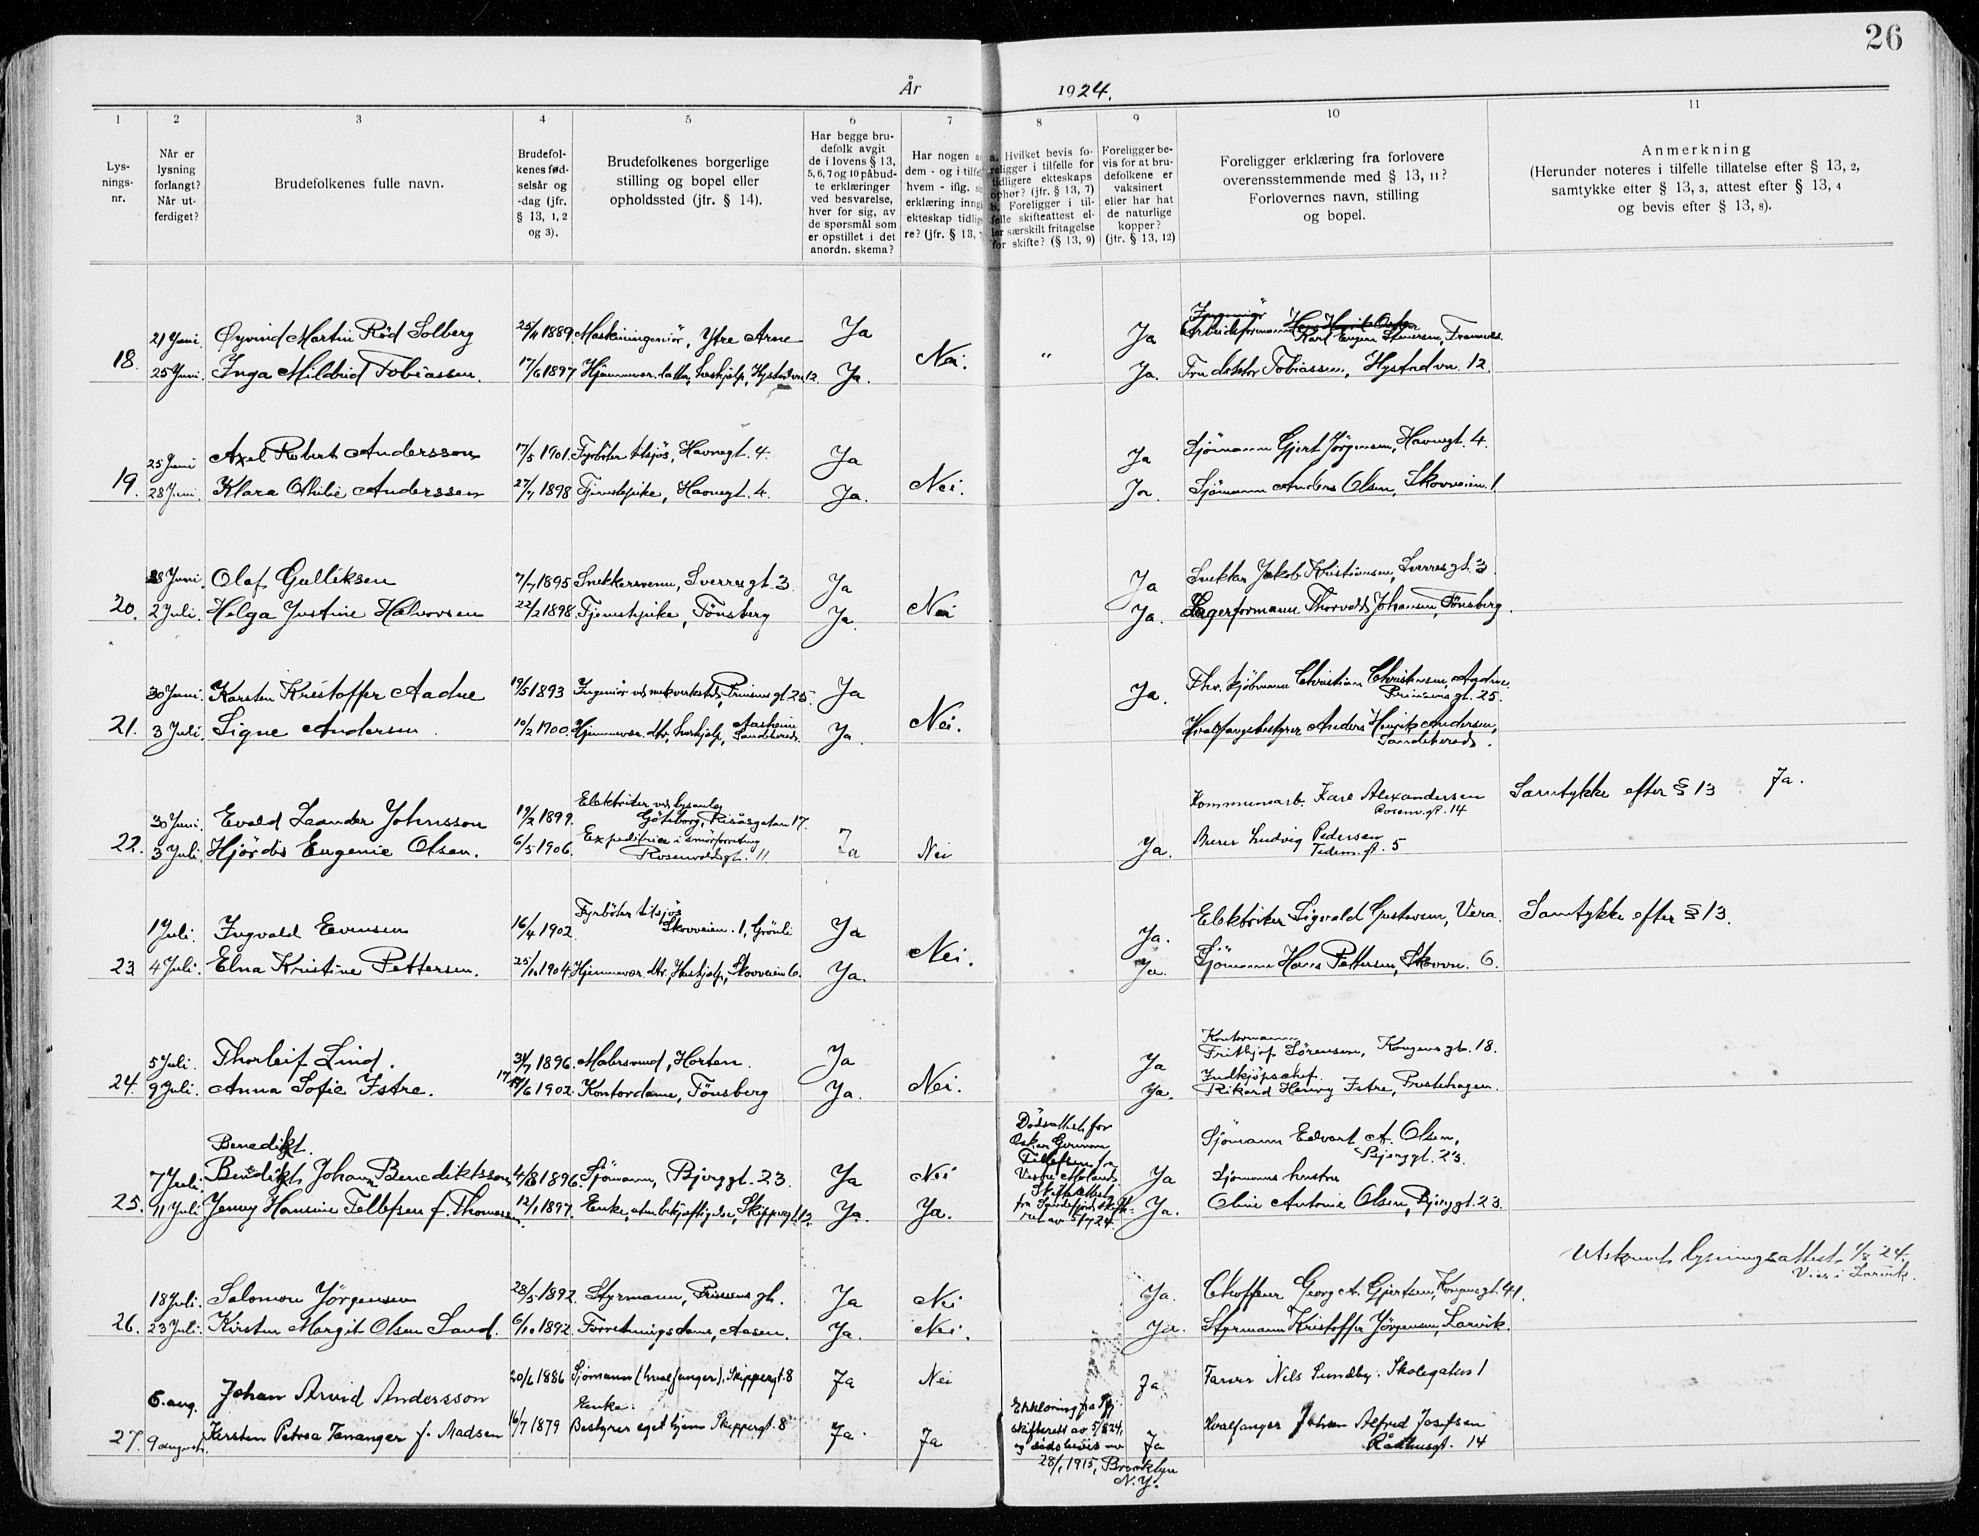 26
År 1924.
1 2 3 4 5 6 7 8 9 10 11
Lys-
nings-
nr.
Når er
lysning
forlangt?
Når ut-
ferdiget?
Brudefolkenes fulle navn.
Brudefol-
kenes fød-
selsår og
-dag (jfr.
§ 13, 1, 2
og 3).
Brudefolkenes borgerlige
stilling og bopel eller
opholdssted (jfr. § 14).
Har begge bru-
defolk avgit
de i lovens § 13,
5, 6, 7 og 10 påbud-
te erklæringer
ved besvarelse,
hver for sig, av
de spørsmål som
er opstillet i det
anordn. skema?
Har nogen a
dem - og i tilfe
hvem - iflg. s
erklæring inng
ekteskap tidlig
re? (jfr. § 13,
a. Hvilket bevis fo-
religger i tilfelle for
tidligere ekteskaps
ophør? (jfr. § 13, 7)
b. Foreligger i til-
felle skifteattest el-
ler særskilt fritagelse
for skifte? (§ 13, 9)
Foreligger be-
vis for at bru-
defolkene er
vaksinert
eller har hat
de naturlige
kopper?
(jfr. § 13, 12)
Foreligger erklæring fra forlovere
overensstemmende med § 13, 11?
Forlovernes navn, stilling
og bopel.
Anmerkning
(Herunder noteres i tilfelle tillatelse efter § 13, 2,
samtykke efter § 13, 3, attest efter § 13, 4
og bevis efter § 13, 8).
Ingeniør
21 Juni. Øyvind Martin Rød Solberg 25/4 1889 Maskiningeniør, Ytre Arne Ja Ja Karl Eugen Stenersen, Framnes.
18. 25 Juni. Inga Mildrid Tobiassen. 17/6 1897 Hjemmevær. datter, hushjelp, Hystadvn 12. Ja. Nei. " Ja. Fru doktor Tobiassen, Hystadvn. 12.
25 Juni Axel Robert Andersson 17/5 1901. Fyrbøter tilsjøs, Havnegt. 4. Ja Ja Sjømann Gjert Jørgensen, Havnegt. 4.
19. 28 Juni. Klara Othilie Anderssen 27/7 1898 Tjenestepike, Havnegt. 4. Ja. Nei. Ja. Sjømann Anders Olsen, Skovveien. 1
28 Juni. Olaf Gulliksen 7/7 1895 Snekkersvenn, Sverresgt. 3. Ja Ja Snekker Jakob Kristiansen, Sverresgt. 3.
20. 2 Juli. Helga Justine Halvorsen 22/2 1898. Tjenestepike, Tønsberg Ja. Nei Ja. Lagerformann Thorvald Johansen, Tønsberg.
30 Juni. Karsten Kristoffer Aadne 19/5 1893 Ingeniør ved mek verksted, Prinsens gt. 25. Ja Ja. Christian Christensen
Prinsens gt. 25.
21. 3 Juli. Signe Andersen. 10/2 1900. Hjemmevær. dtr, hushjelp, Aasheim
Sandeherad. Ja. Nei. Hvalfangstbestyrer Anders Henrik Andersen,
Sandeherad.
30 Juni. Evald Leander Johnsson 19/2 1899. Elektriker ved lysanlæg
Göteborg, Risåsgatan 17. Kommunearb. Karl Alexandersen
Rosenv.gt. 14 Samtykke efter § 13 Ja.
22. 3 Juli Hjørdis Eugenie Olsen. 6/5 1906. Expeditrice i smørforretning
Rosenvoldsgt. 11 Ja Nei Ja. Murer Ludvig Pedersen
Tidem.gt. 5
1 Juli. Ingvald Evensen 16/4 1902. Fyrbøter tilsjøs
Skovveien. 1, Grønli Ja Ja. Elektriker Sigvald Gustavsen, Vera. Samtykke efter § 13.
23. 4 Juli. Elna Kristine Pettersen. 25/10 1904. Hjemmevær. dtr, Hushjelp, Skovveien 6. Ja. Nei. Ja. Sjømann Hans Pettersen, Skovvn. 6.
5 Juli. Thorleif Lind. 31/7 1896. Malersvend, Horten. Ja Ja Kontormann
Frithjof Sørensen, Kongensgt. 18.
24. 9 Juli. Anna Sofie Istre. 17/6 1902. Kontordame, Tønsberg Ja. Nei. Ja. Indkjøpschef
Rikard Henry Istre, Prestehagen.
Benedikt.
7 Juli. Benedikt Johan Benediktsson 4/8 1896. Sjømann, Bjerggt. 23. Ja Nei Dødsattest for
Oskar German
Tellefsen fra
Vestre Moland.
Skifteattest
fra Sandefjord skifte-
ret av 5/7 24. Ja Sjømann Edvart A. Olsen,
Bjerggt. 23.
25. 11 Juli Jenny Hermine Tellefsen f. Thomassen. 12/1 1897. Enke, uten beskjæftigelse, Skippergt. 12. Ja. Ja. Ja. Sjømanns hustru
Oline Antonie Olsen, Bjerggt. 23.
Utskrevet lysningsattest 1/8 24.
Vies i Larvik.
18 Juli. Salomon Jørgensen 28/5 1892. Styrmann, Prinsens gt. Ja Nei Ja. Choffeur Georg A. Gjertsen, Kongensgt. 41.
26. 23 Juli. Kirsten Margit Olsen Sand. 6/10 1892. Forretningsdame, Aasen. Ja. Nei. Ja. Styrmann Kristoffer Jørgensen, Larvik.
6. aug. Johan Arvid Andersson 20/6 1886 Sjømann (hvalfanger), Skippergt. 8 Ja Nei Ja. Farver Nils Sundby. Skolegaten 1
27. 9 august. Kirsten Petrea Tananger f. Madsen 16/7 1879 Enke.
Bestyrer eget hjem Skippergt. 8 Ja. Ja Erklæring fra
skifterett av 5/8 24,
og dødsbevis av
28/1 1915, Brooklyn
N.Y. Ja Hvalfanger Johan Alfred Josefsen
Rådhusgt. 14